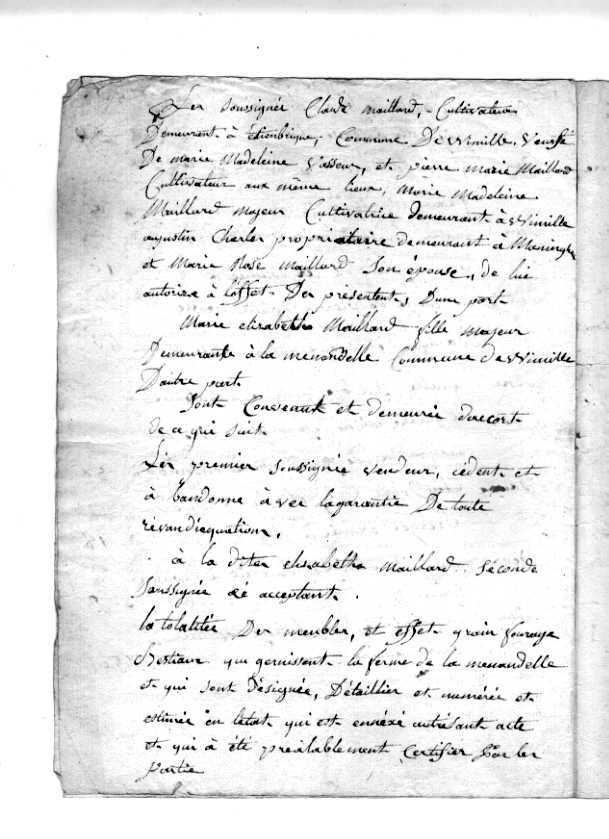 Les soussignée Claude maillard, Cultivateur
Demeurant à Etienbrique, Commune De Wimille, Veuf
De marie Madeleine Vasseur, et pierre marie Maillard
Cultivateur aux même lieux, Marie Madeleine
Maillard majeur Cultivatrice demeurant à Wimille
augustin Charles propriétaire demeurant a
et Marie Rose Maillard Son épouse, de lui
autorize à l'effet Des présentent, Dune part
Marie elizabeth Maillard fille majeur
Demeurante à la menandelle Commune de Wimille
Dautre part
Sont Convenut et demeurée daccort
de ce qui suit
Les premier soussignée vendeur, cèdent et
à bandonne àvec lagarantie De toute
révandiquation,
à la ditea elisabeth maillard seconde
soussignée acceptant.
la totalitée Des meubles, et effet grain fourage
bestiaux qui garnissent la ferme de la menandelle
et qui sont Désignée, Détaillier et numérée et
estimée en létat qui est annéxé autrésant acte
et qui à été préalablement Certifier par les
partie